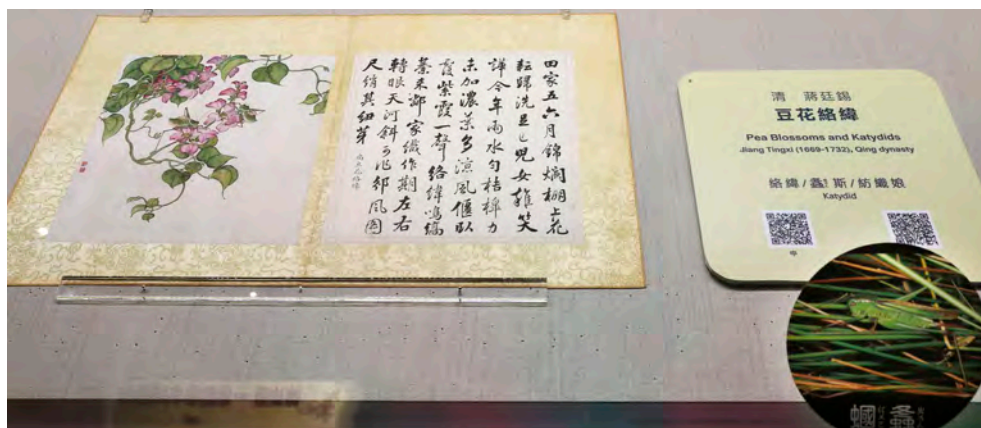 田家五六月錦爛棚上花
耘歸洗足已兒女雜笑
譁今年雨水勻桔槔力
未加濃葉多涼風偃臥
紫霞一聲絡緯鳴縞
綦來鄰家織作期左右
轉眼天河斜可作豳風圖
尺綃其細摹
右豆花絡緯
清 蔣廷錫
豆花絡緯
Pea Blossoms and Katydids
Jiang Tingxi (1669-1732), Qing dynasty
絡緯/螽斯/紡織娘
Katydid
蟈 螽